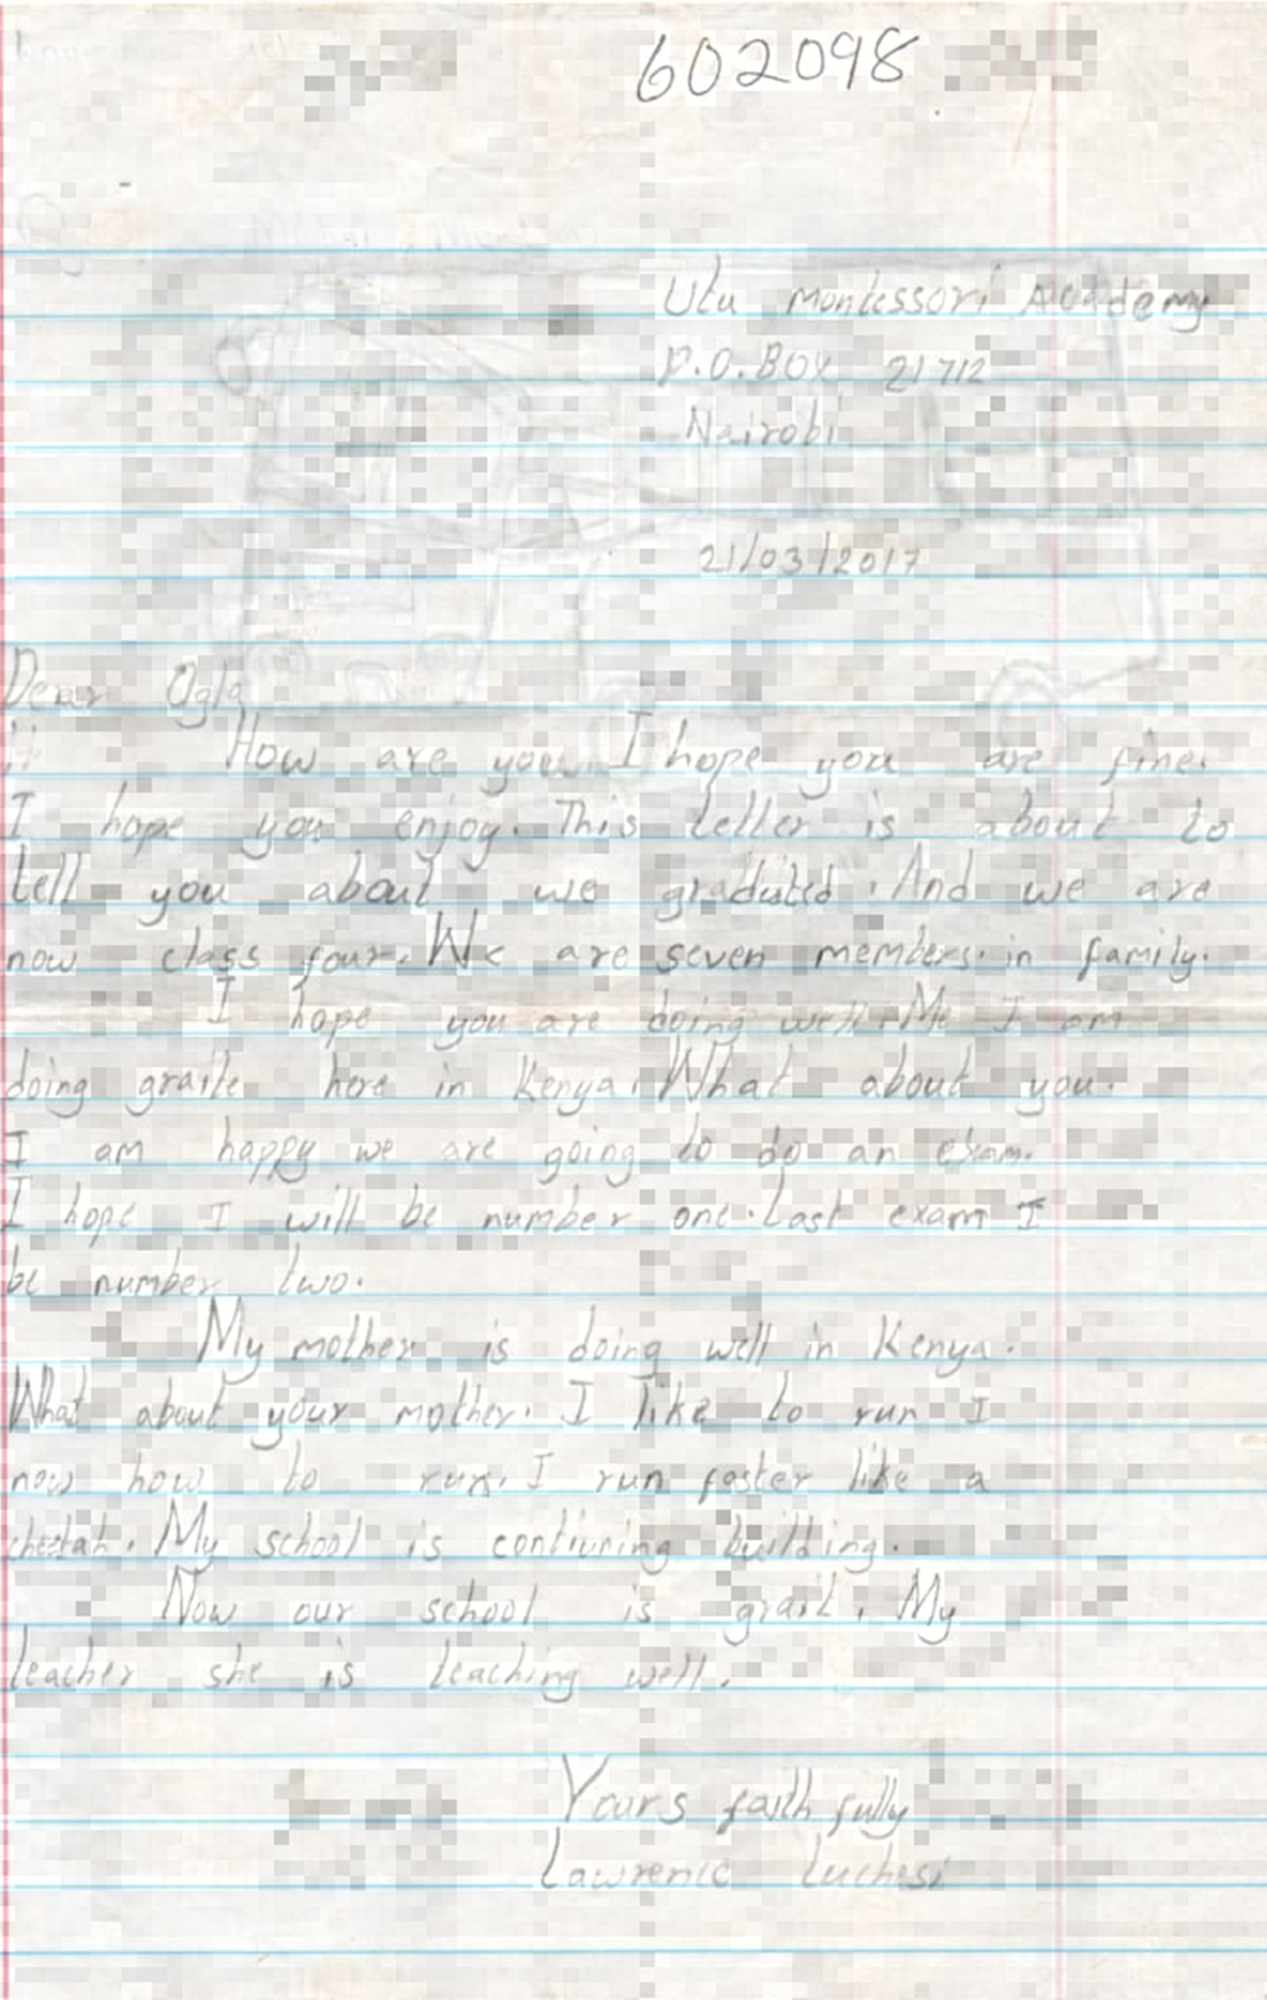 602098
Utu Montessori Academy
P.O.BOX 21712
Nairobi
21/03/2017
Dear Ogla
How are you. I hope you are fine.
I hope you enjoy. This letter is about to
tell you about we graduted. And we are
now class four. We are seven members. in family.
I hope you are doing well. Me I am
doing graite here in Kenya. What about you.
I am happy we are going to do an exam.
I hope I will be number one. Last exam I
be number two.
My mother is doing well in Kenya.
What about your mother. I like to run I
now how to run. I run faster like a
cheetah. My school is contiuning building.
Now our school is grait. My
teacher she is teaching well.
Yours faith fully
Lawrence Luchesi